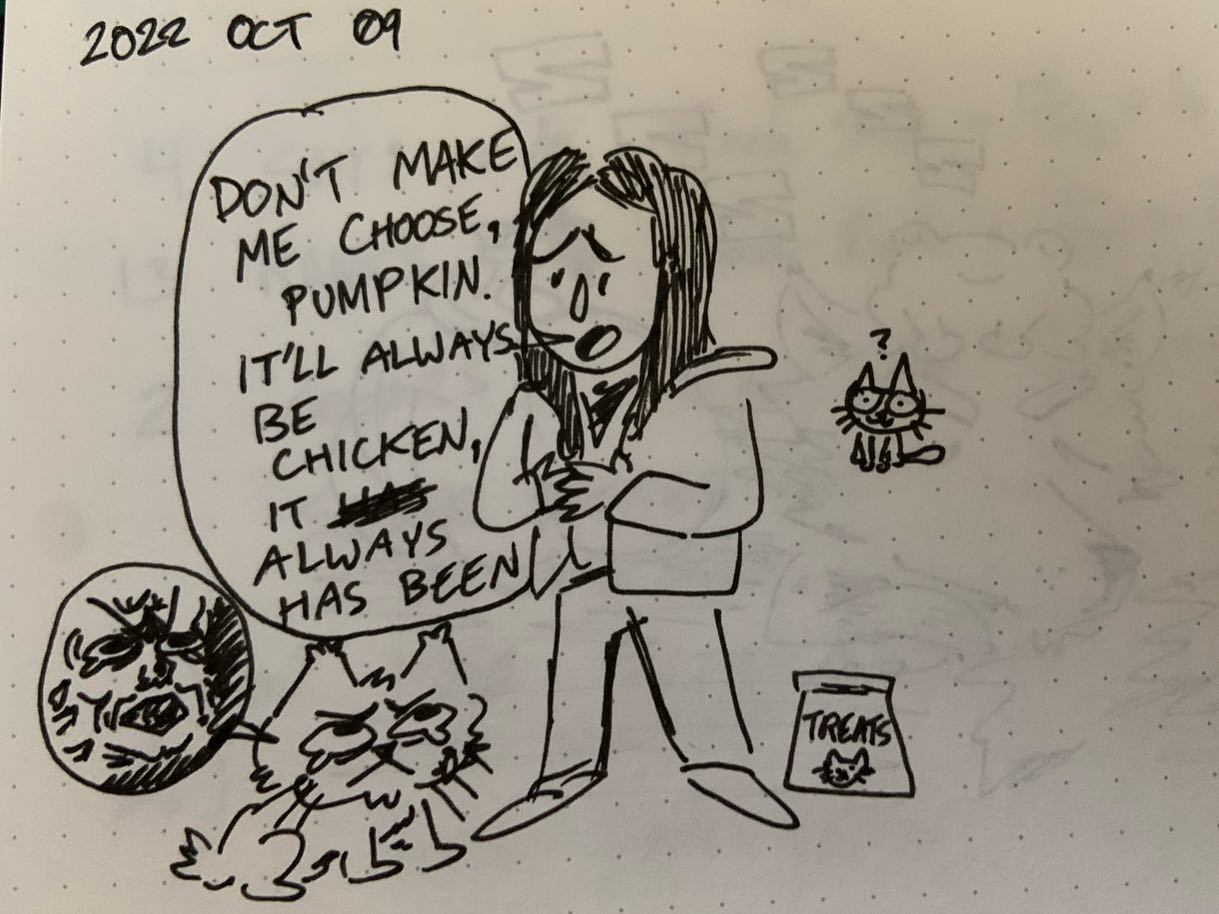 2022 OCT 09
DON'T MAKE
ME CHOOSE,
PUMPKIN.
IT'LL ALWAYS
BE
CHICKEN,
IT
ALWAYS
HAS BEEN
?
TREATS